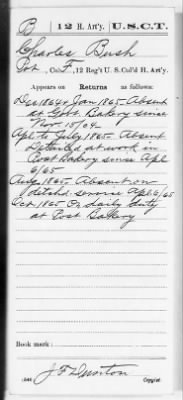 B 12 H. Art'y. U.S.C.T.
Charles Bush
Pvt., Co. F, 12 Reg't U. S. Col'd H. Art'y.
Appears on Returns as follows:
Dec 1864 & Jan 1865. Absent
at Govt. Bakery since
Nov 15/64
Apl. to July 1865. Absent
Detailed at work in
Post Bakery service Apl.
6/65
Aug 1865. Absent on
detchd. service Apl. 6/65
Oct. 1865 On daily duty
at Post Battery
Book mark:
Copyist.